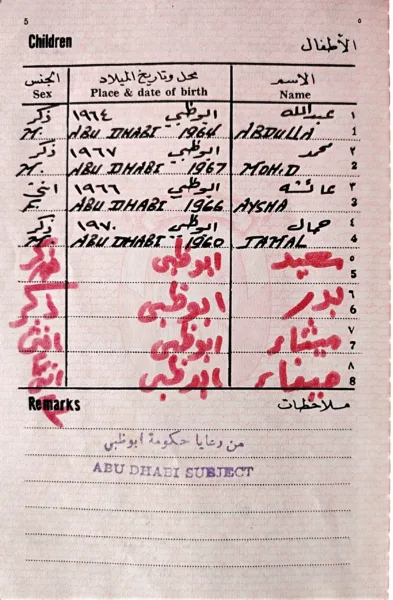 5 ٥
Children الأطفال
الجنس محل وتاريخ الميلاد الاسم
Sex Place & date of birth Name
ذكر ١٩٦٤ ابوظبي عبدالله ١
M. ABU DHABI 1964 ABDULLA 1
ذكر ١٩٦٧ ابوظبي محمد ٢
M. ABU DHABI 1967 MOHD 2
انثى ١٩٦٦ ابوظبي عائشه ٣
F. ABU DHABI 1966 AYSHA 3
ذكر ١٩٧٠ ابوظبي جمال ٤
M. ABU DHABI 1960 JAMAL 4
ذكر ابوظبي سعيد ٥
5
ذكر ابوظبي بدر ٦
6
انثى ابوظبي ميثاء ٧
7
انثى ابوظبي ٨
8
Remarks ملاحظات
من رعايا حكومة ابوظبي
ABU DHABI SUBJECT